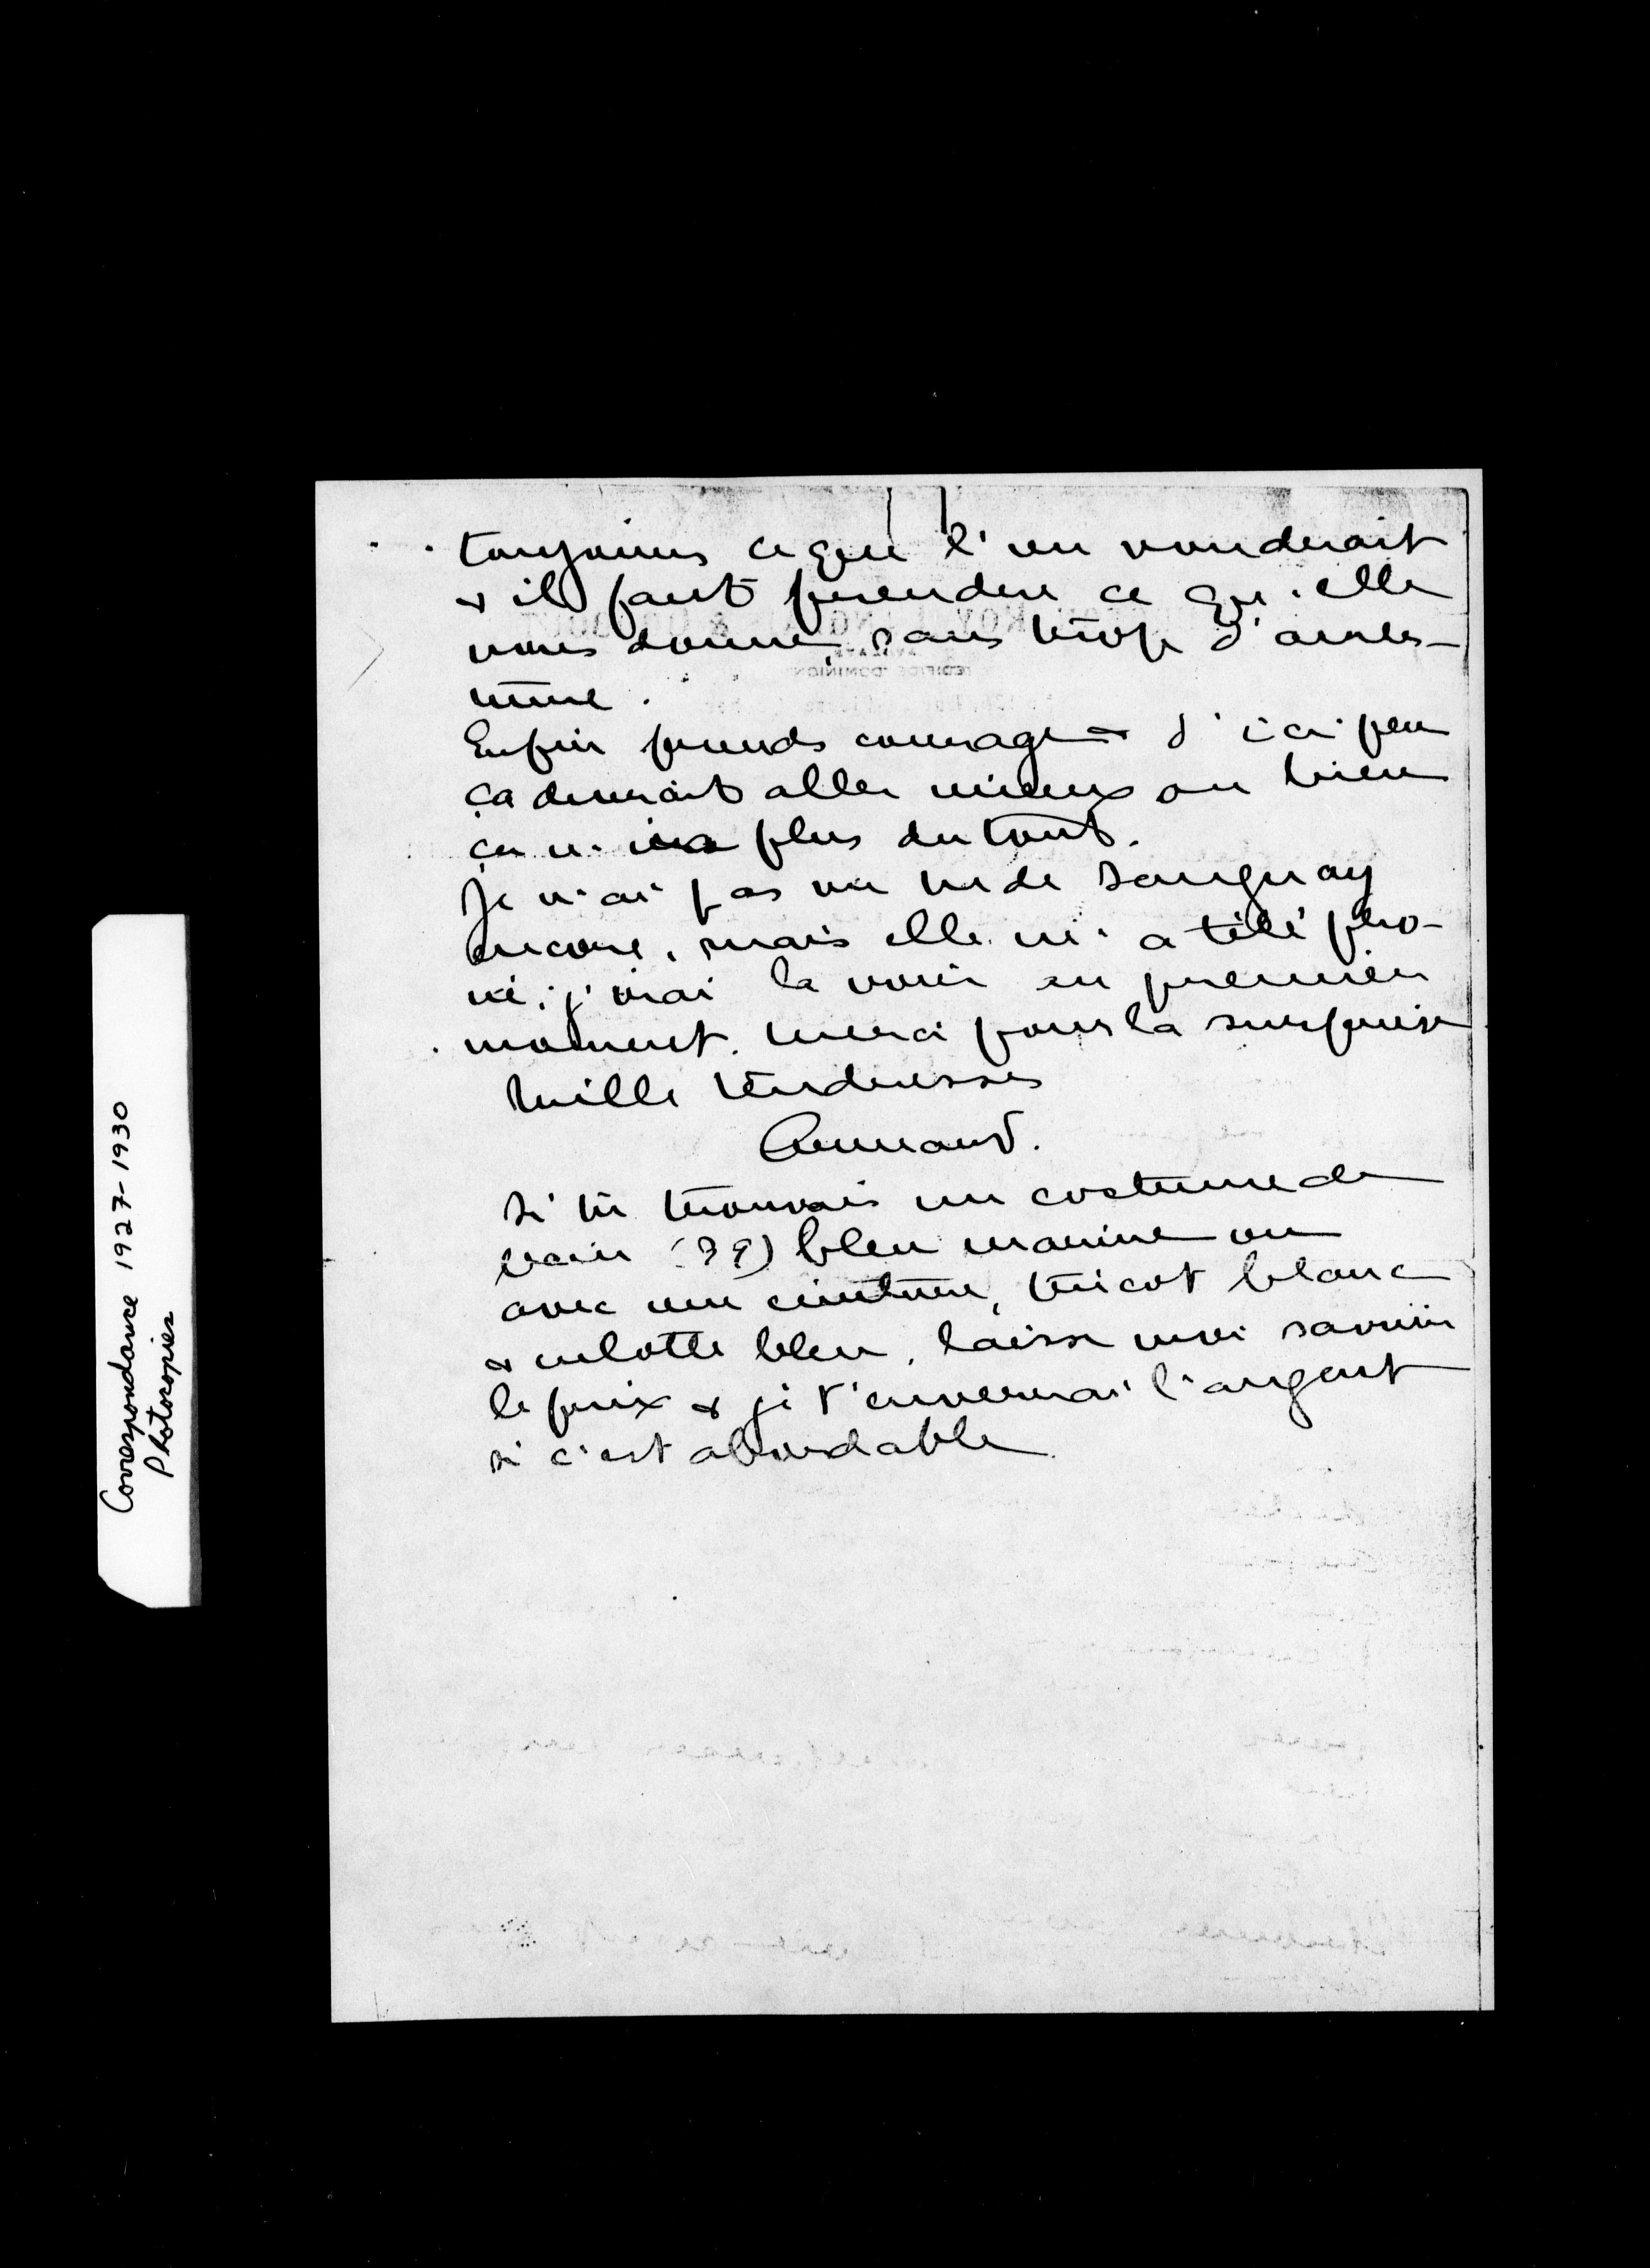 Correspondance 1927-1930
Photocopies
toujours ce que l'on vouderait
& il faut prendre ce qu'elle
nous donne, sans trop d'amer-
tume.
Enfin prends courage & d'ici peu
ça devrait aller mieux ou bien
ça n'ira plus du tout.
Je n'ai pas vu Mde Tanguay
encore, mais elle m'a télépho-
né; j'irai la voir au premier
moment. Merci pour la surprise
Mille tendresses
Armand.
Si tu trouvais un costume de
bain (39) bleu marine ou
avec une ceinture, tricot blanc
& culotte bleu, laisse moi savoir
le prix & je t'enverrai l'argent
si c'est abordable